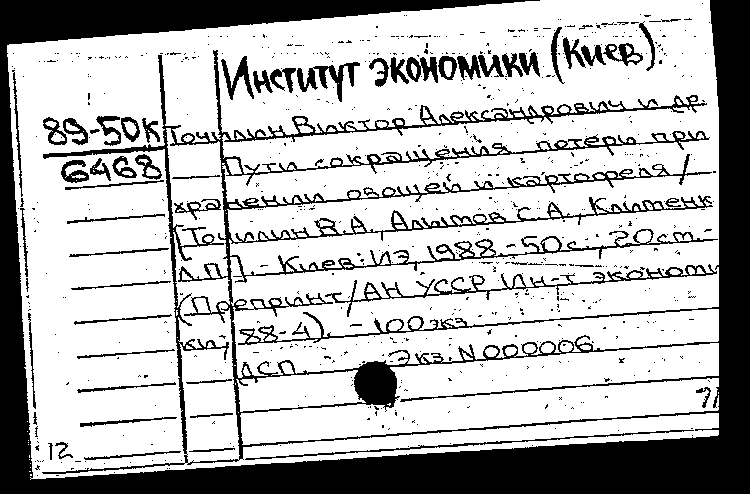 Институт экономики (Киев).
89-50К Точилин Виктор Александрович и др.
6468 Пути сокращения потерь при
хранении овощей и картофеля /
[Точилин В.А., Алымов С.А., Клитенк
Л.П.]. - Киев: ИЭ, 1988. - 50 с.; 20 см. -
(Препринт/АН УССР, Ин-т экономи
ки; 88-4). - 100 экз.
ДСП. Экз. N 000006.
12